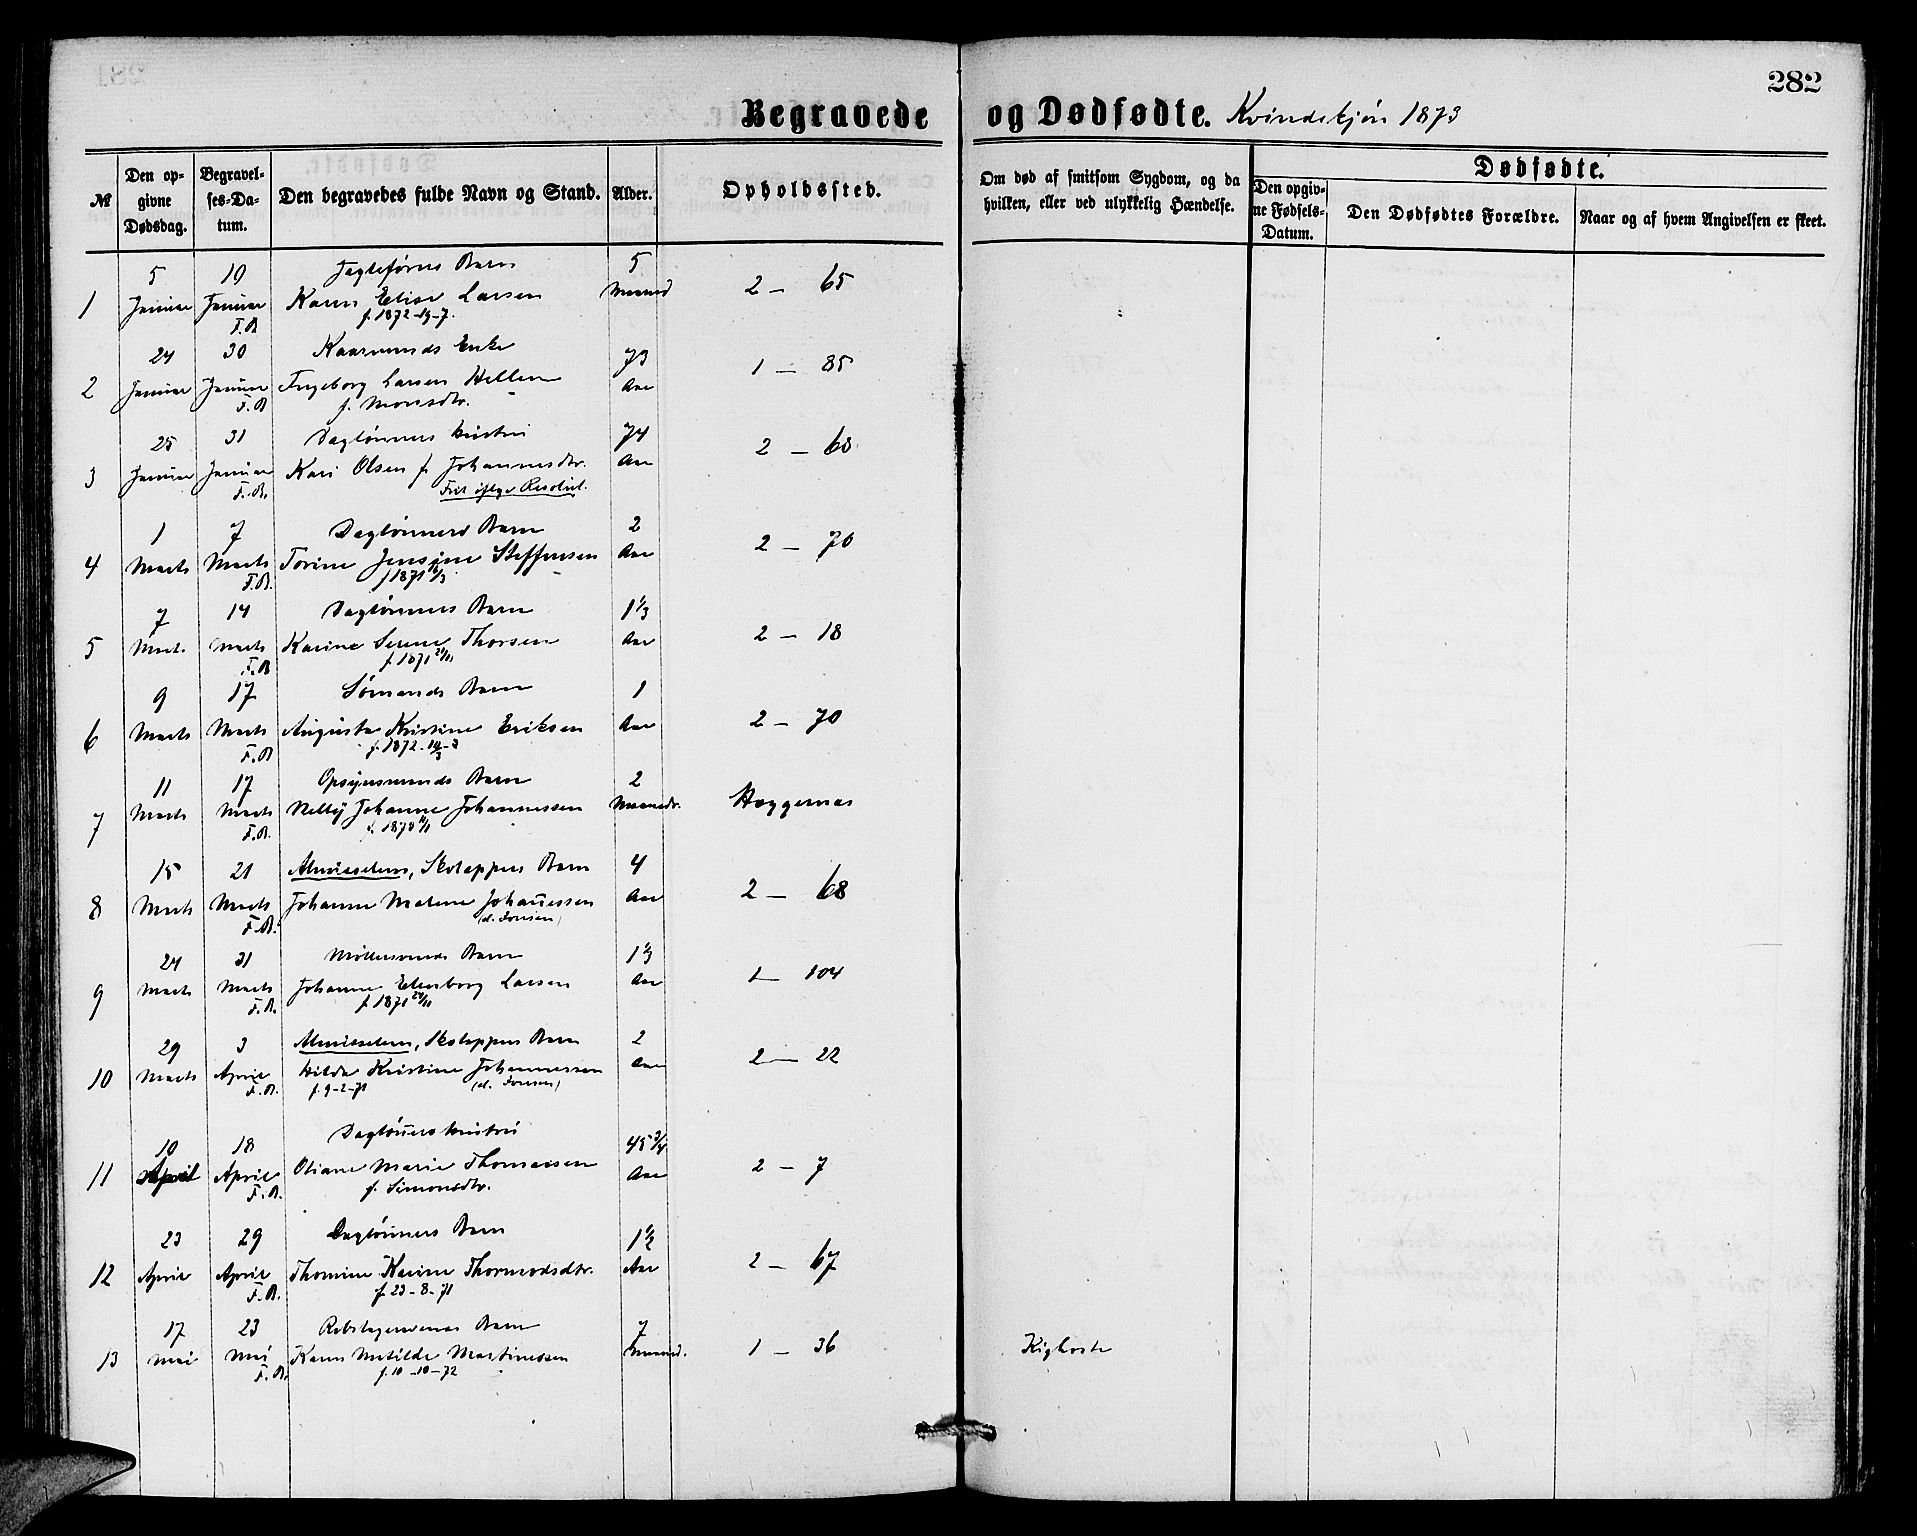 282
Begravede og Dødfødte. Kvindekjön 1873
№
Den opgivne Dødsdag.
Begravelses-Datum.
Den begravedes fulde Navn og Stand.
Alder.
Opholdssted.
Om død af smitsom Sygdom, og da hvilken, eller ved ulykkelig Hændelse.
Dødfødte.
Den opgivne Fødsels-Datum.
Den Dødfødtes Forældre.
Naar og af hvem Angivelsen er skeet.
5 19 Jagteförers Barn 5
1 Januar Januar Karen Elise Larsen Maaned 2 – 65
F.B. f. 1872-19-7.
24 30 Enke 73
2 Januar Januar Ingeborg Larsen Hellen Aar 1 – 85
F.B. f. Monsdtr.
25 31 Daglönners hustru 74
3 Januar Januar Kari Olsen f. Johannesdtr. Aar 2 – 68
F.B. Frit iflge Resolut.
1 7 Daglönners Barn 2
4 Marts Marts Torine Jensine Steffensen Aar 2 – 70
F.B. f 1871
7 14 Daglönners Barn 1 1/3
5 Marts Marts Karine Serene Thorsen Aar 2 – 18
F.B. f. 1871 24/11
9 17 Sömands Barn 1
6 Marts Marts Augusta Kristine Eriksen Aar 2 – 70
F.B. f. 1872
11 17 Opsynsmands Barn 2
7 Marts Marts Nelly Johanne Johannessen Maanedr. Hæggernæs
F.B.
15 21 Almisselem, Skolappers Barn 4
8 Marts Marts Johanne Malene Johañessen Aar 2 – 68
F.B.
24 31 Möllersvends Barn 1 1/3
9 Marts Marts Johanne Elenborg Larsen Aar 1 – 104
F.B. f. 1871 24/11
29 3 Almisselem, Skolappers Barn 2
10 Marts April Hilda Kristine Johannessen Aar 2 – 22
F.B. f. 9-2-71
10 18 Daglöñers hustru 45 3/4
11 April April Oliane Marie Thomassen Aar 2 – 7
F.B. f. Simonsdtr.
23 29 Daglönners Barn 1 1/2
12 April April Thomine Karine Thormodsdtr. Aar 2 – 67
F.B. f. 23-8-71
17 23 Barn 7
13 Mai Mai Karen Matilde Martinessen Maaned. 1 – 36 Kighoste
F.B. f. 10-10-72